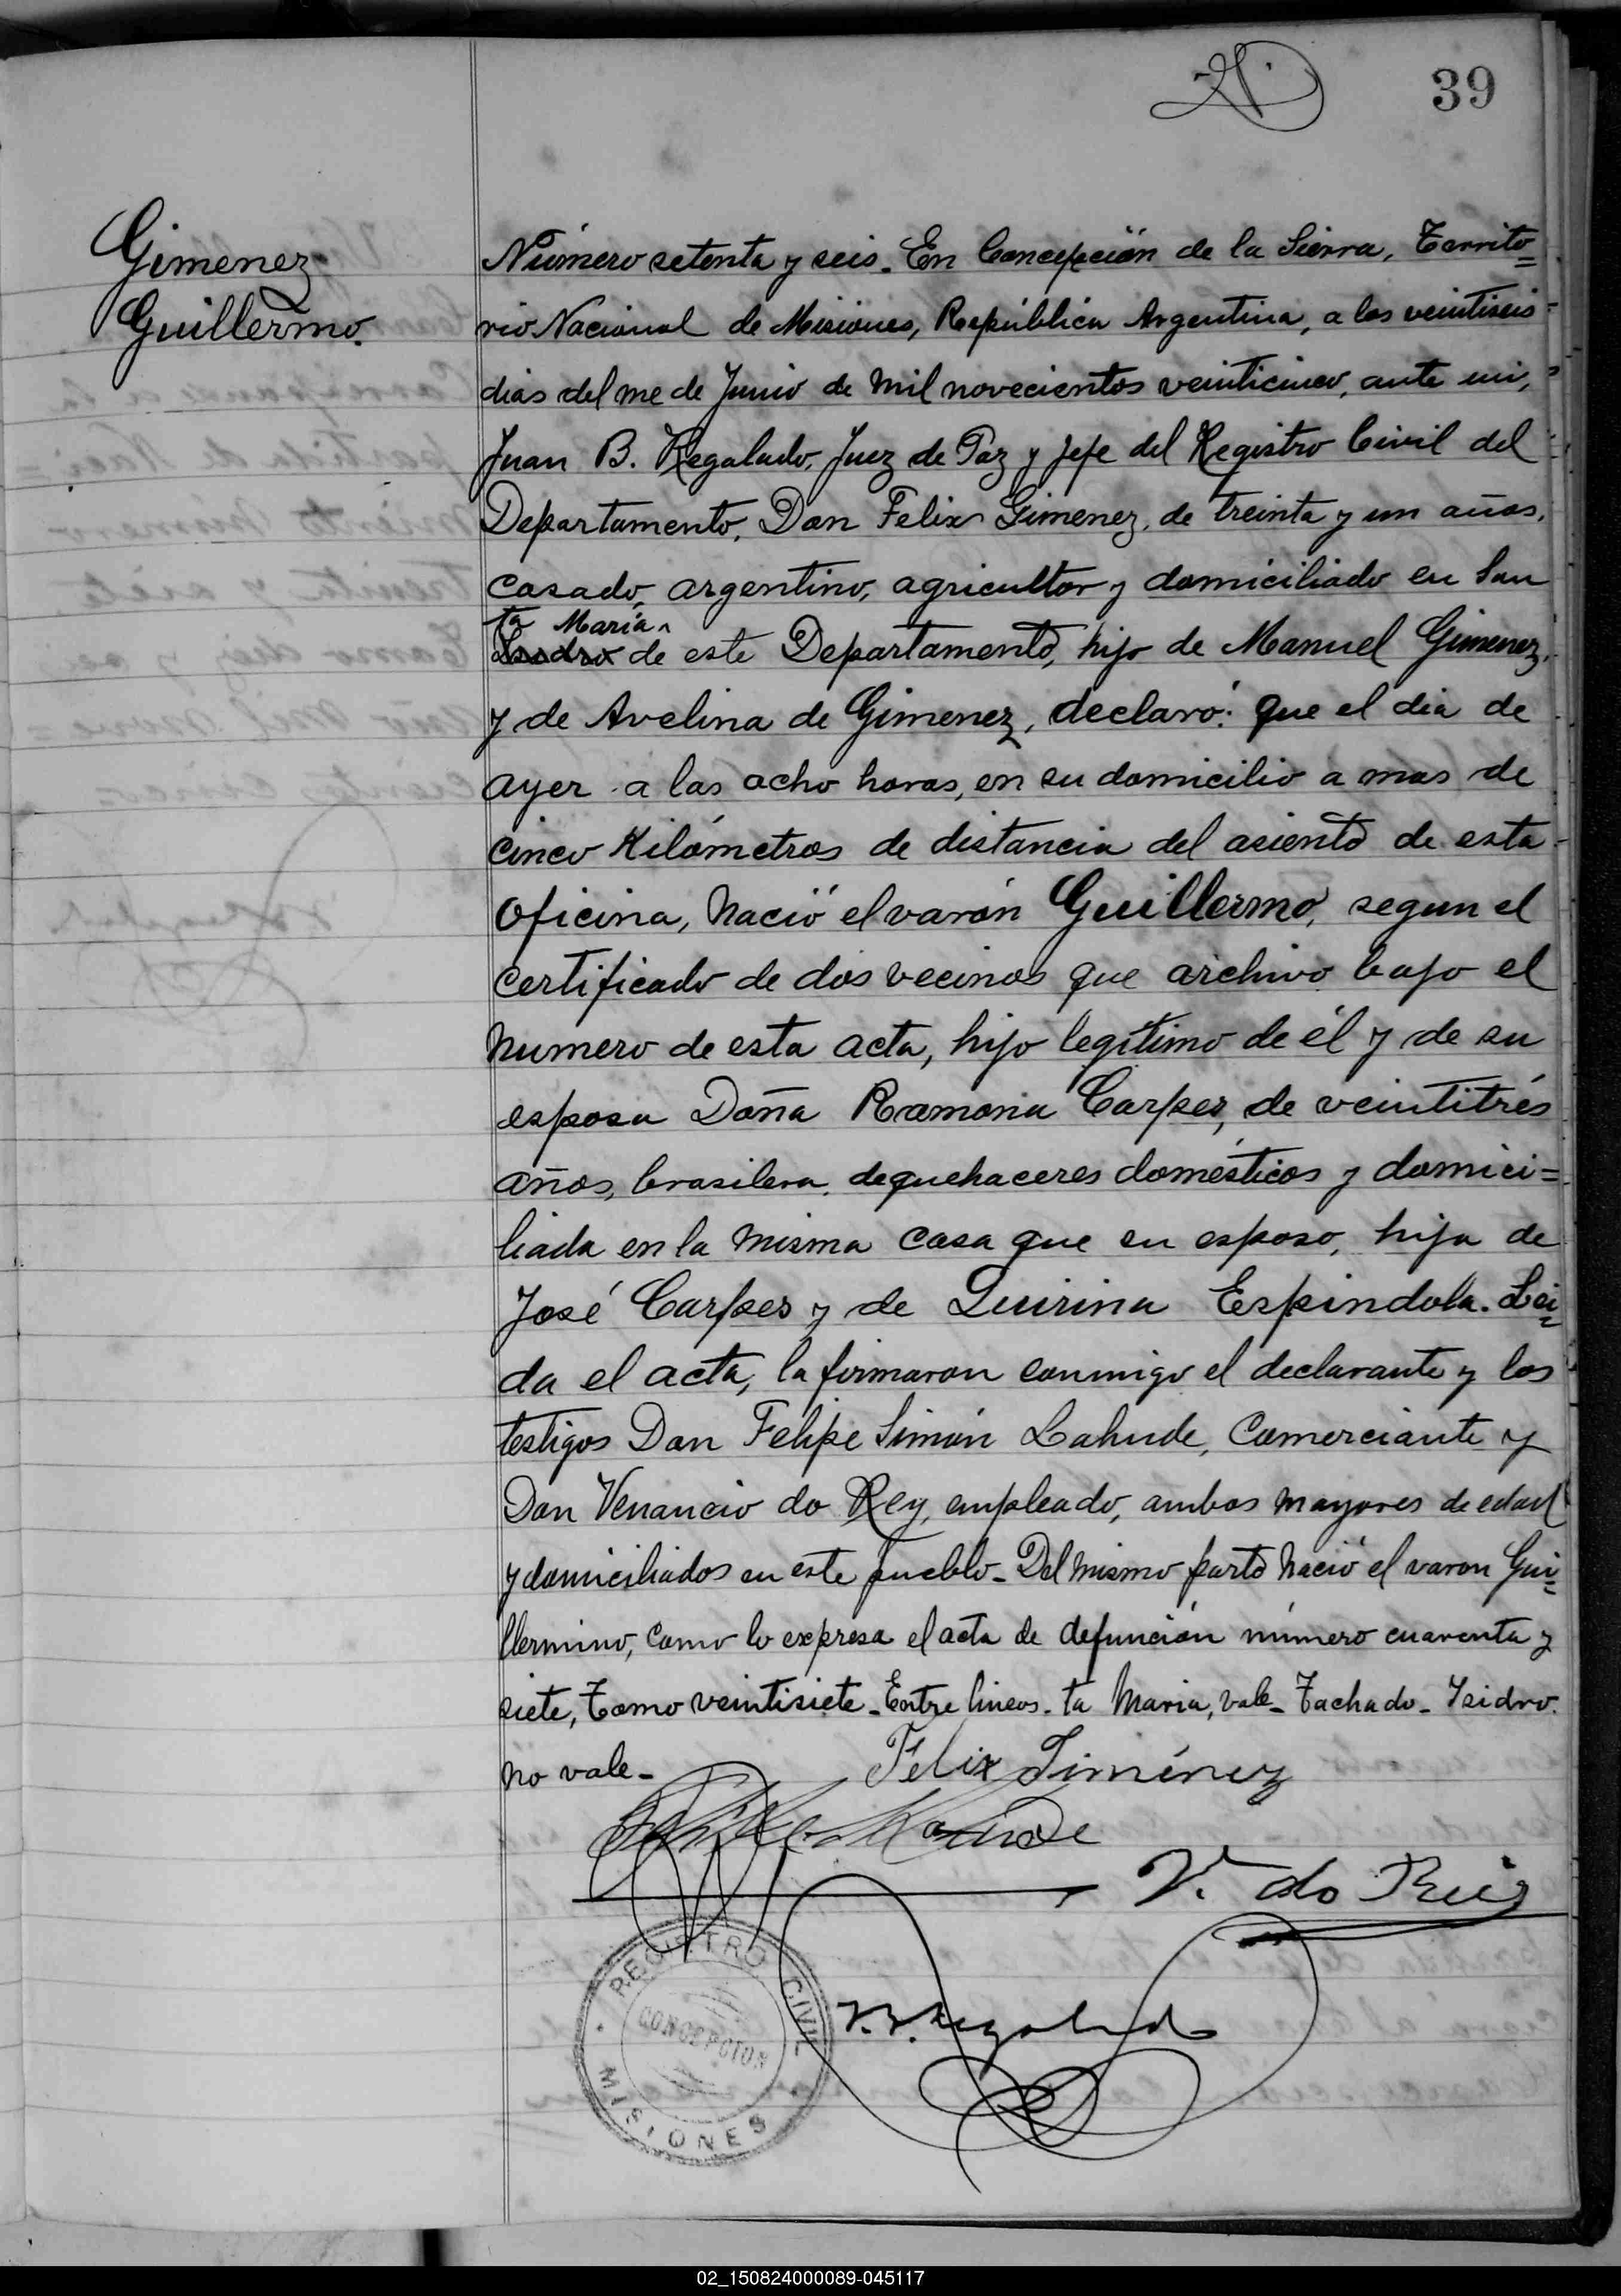 39
Gimenez
Guillermo.
Número setenta y seis. En Concepción de la Sierra, Territo=
rio Nacional de Misiones, República Argentina, a los veintiseis
dias del me de Junio de mil novecientos veinticinco, ante mi,
Juan B. Regalado, Juez de Paz y Jefe del Registro Civil del
Departamento, Don Felix Gimenez, de treinta y un años,
casado, argentino, agricultor y domiciliado en San
ta María
Isidro de este Departamento, hijo de Manuel Gimenez,
y de Avelina de Gimenez, declaró: que el dia de
ayer a las ocho horas, en su domicilio a mas de
cinco Kilómetros de distancia del asiento de esta
Oficina, nació el varón Guillermo, segun el
certificado de dos vecinos que archivo bajo el
numero de esta acta, hijo legítimo de él y de su
esposa Doña Ramona Carpes, de veintitrés
años, brasilera, de quehaceres domésticos y domici=
liada en la misma casa que su esposo, hija de
José Carpes y de Quirina Espindola. Lei=
da el acta, la firmaron conmigo el declarante y los
testigos Don Felipe Simón Lahude, Comerciante y
Don Venancio do Rey, empleado, ambos mayores de edad
y domiciliados en este pueblo. Del mismo parto nació el varon Gui=
llermino, como lo expresa el acta de defunción número cuarenta y
siete, Tomo veintisiete. Entre lineas. ta Maria, vale. Tachado. Ysidro.
no vale.
Félix Jiménez
V. do Reis
REGISTRO CIVIL
CONCEPCION
MISIONES
J.B. Regalado
02_150824000089-045117